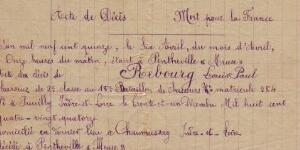 Acte de Décès Mort pour la France
L'an mil neuf cent quinze, le Six Avril, du mois d'Avril,
Onze heures du matin, étant à Pontheville (Meuse)
Acte de décès de Rebourg Louis Paul
Chasseur de 2e classe au Bataillon de Chasseurs Matricule 254
à Indre-et-Loire le trente et un Décembre Mil huit cent
quatre-vingt quatorze
domicilié en dernier lieu à Chaumussay Indre-et-Loire
décédé à Pontheville (Meuse)